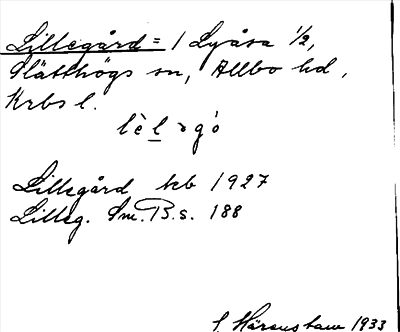 Lillegård = / Lyåsa 1/2,
Slätthögs sn, Allbo hd,
Krbs l.
lèl ɔgó
Lillegård kb 1927
Lilleg. Sm. B. s. 188
1933